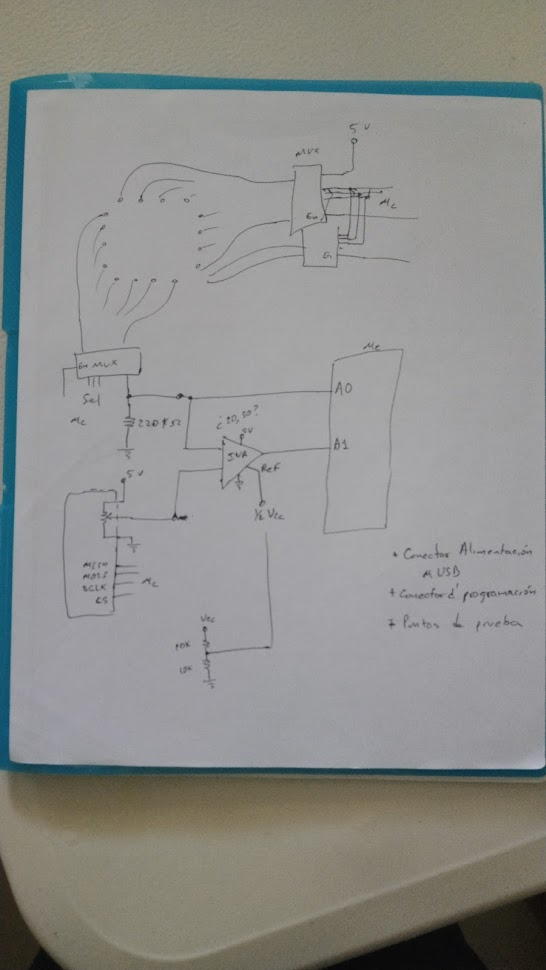 5 V
MUX
En
Mc
En
En MUX
Sel
Mc
220 K Ω
Mc
A0
¿20, 50?
5V
INA
A1
Ref
½ Vcc
5 V
MISO
MOSI
SCLK
CS
Mc
Vcc
10K
10K
* Conector Alimentación
μ USB
* Conector d' programación
* Puntos de prueba